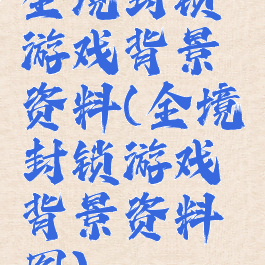 全境封锁
游戏背景
资料(全境
封锁游戏
背景资料
图)